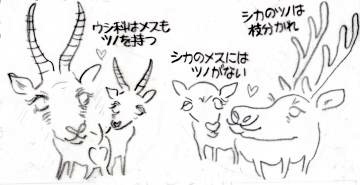 ウシ科はメスも
ツノを持つ
シカのメスには
ツノがない
シカのツノは
枝分かれ